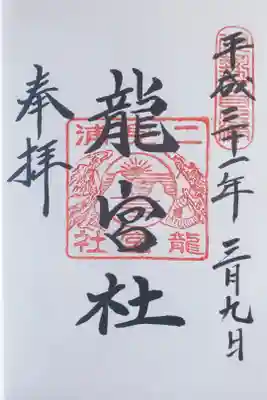 平成三十一年三月九日
龍宮社
奉拝
二見浦
龍宮社